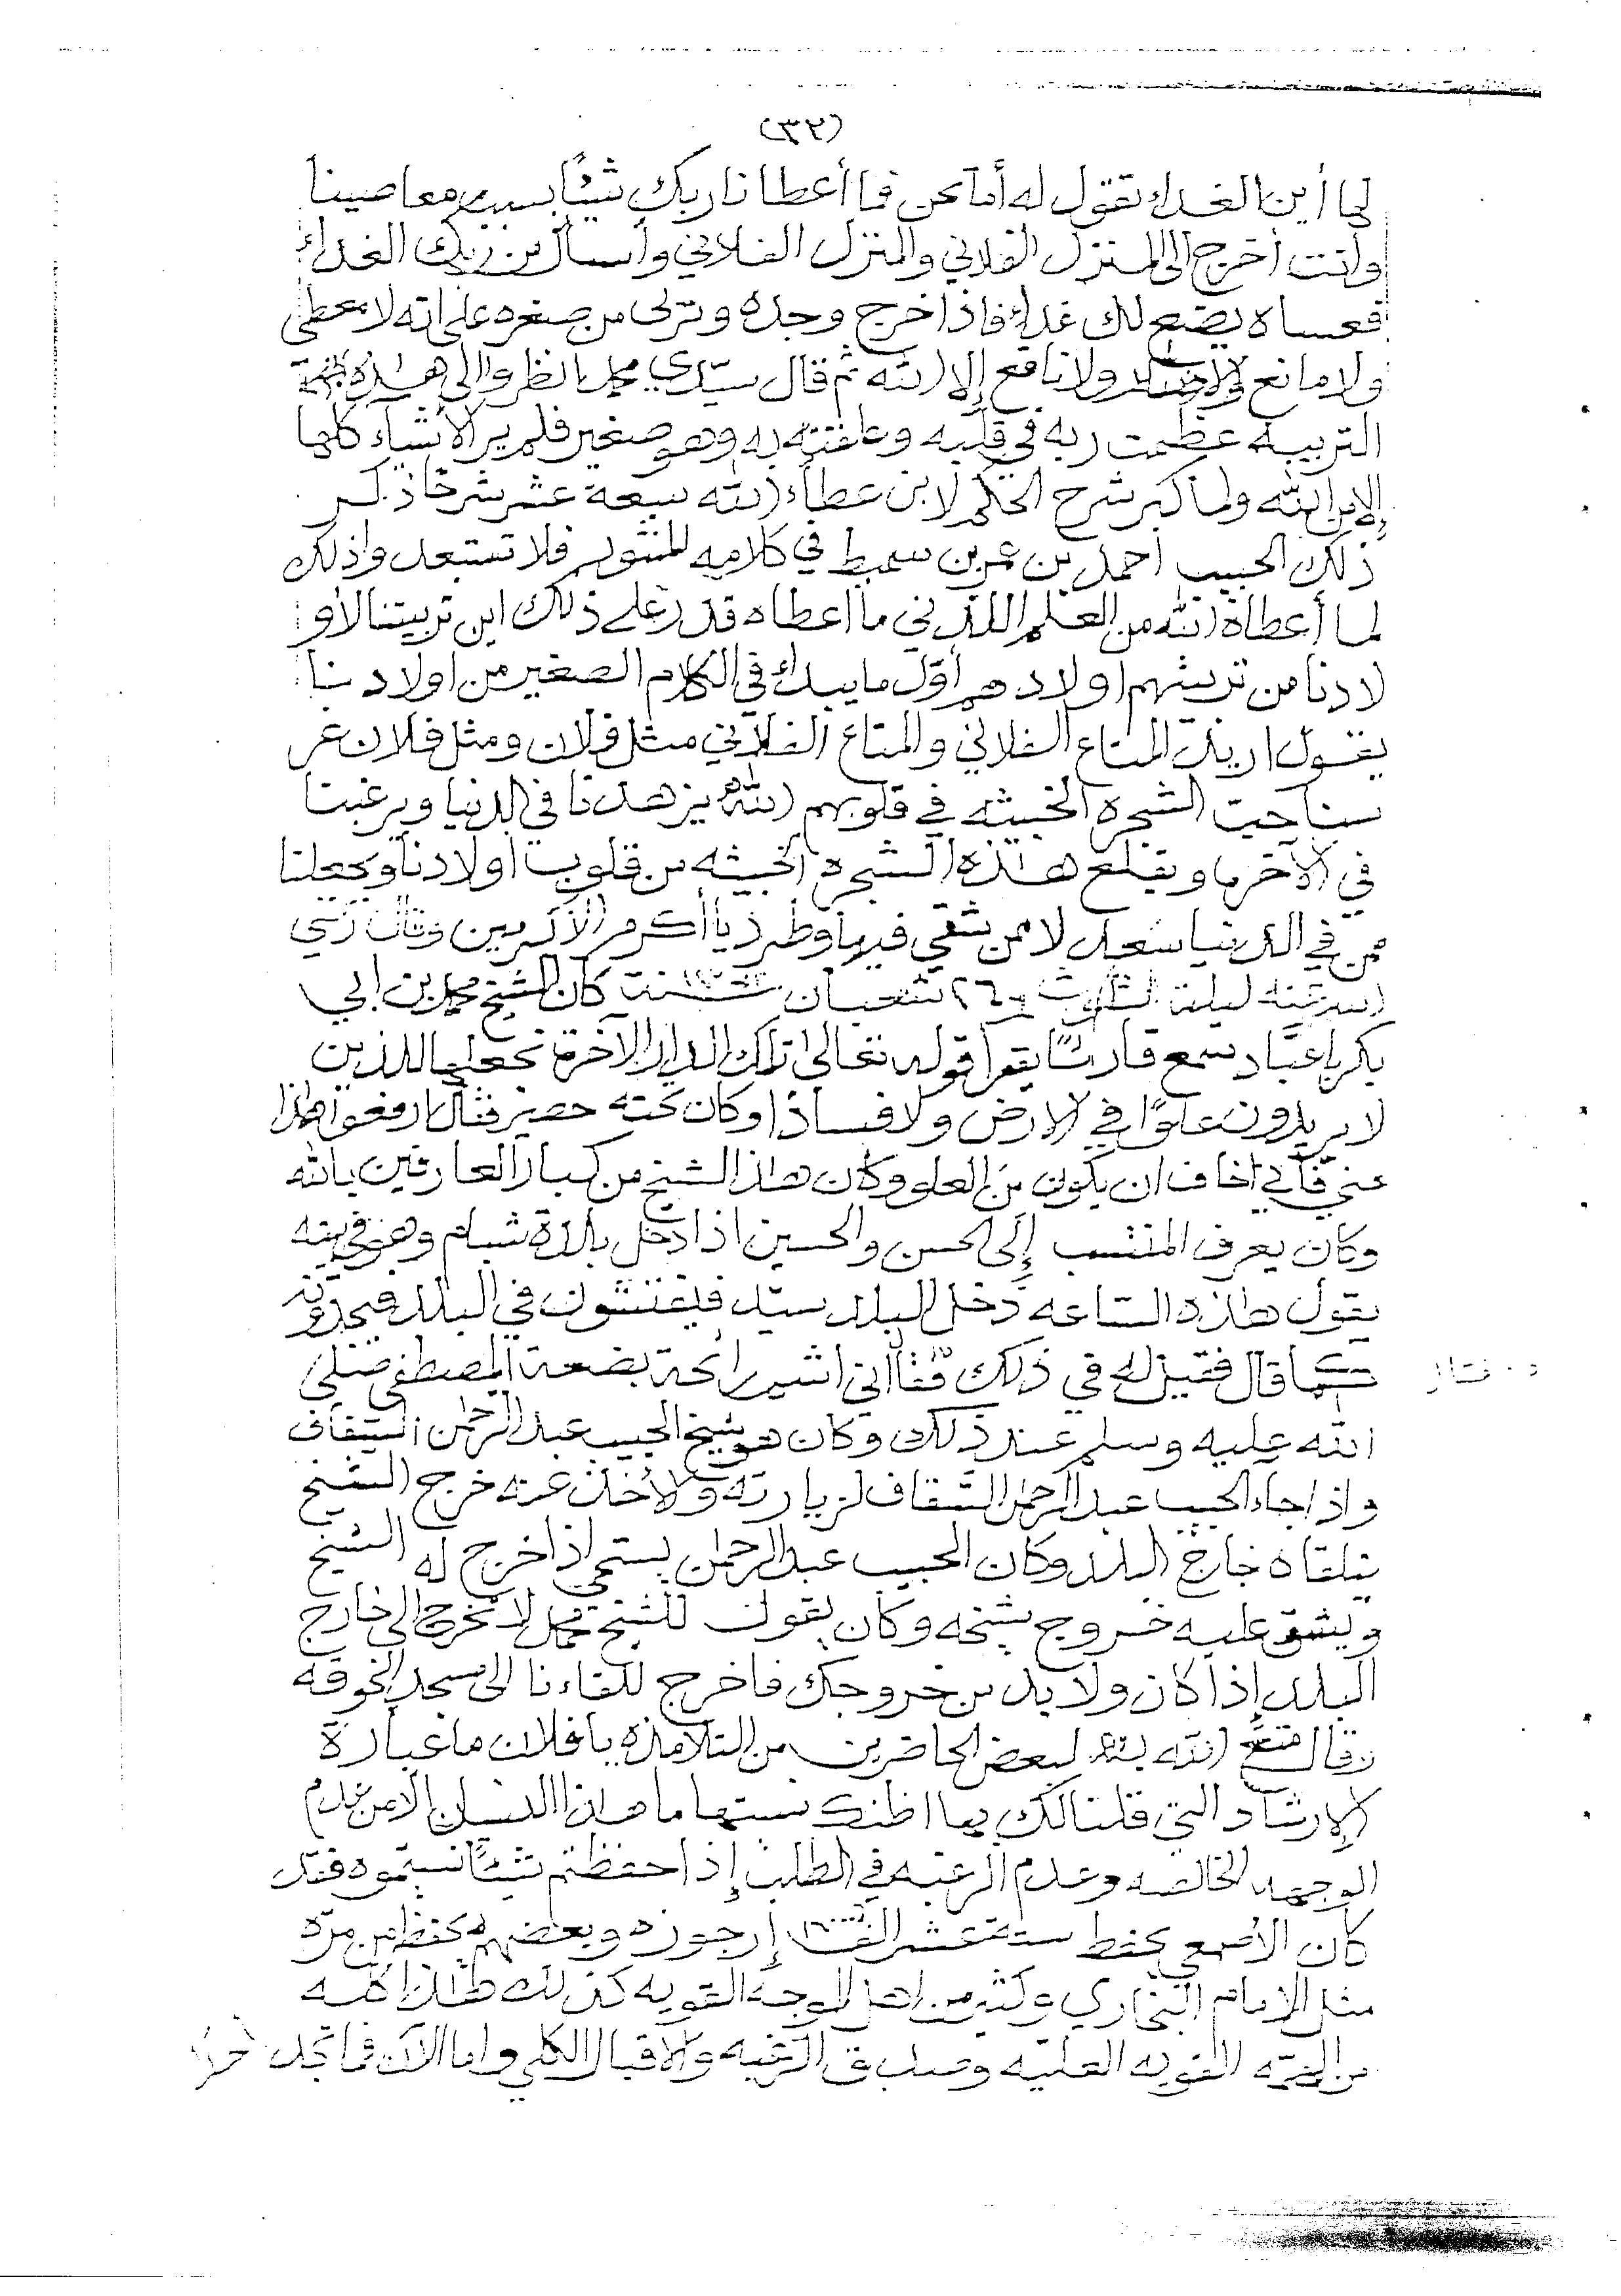 (٣٢)
لها أين الغداء تقول له أما نحن فما أعطانا ربك شيئًا بسبب معاصينا
وأنت أخرج الى المنزل الفلاني والمنزل الفلاني وأسأل من ربك الغداء
فعساه يضع لك غداء فاذا خرج وجده وتربى من صغره على انه لا معطي
ولا مانع ولا ضار ولا نافع إلا الله ثم قال سيدي محمد انظروا الى هذه
التربيه عظمت ربه في قلبه وعلقته به وهو صغير فلم ير الأشياء كلها
إلا من الله ولما كبر شرح الحكم لابن عطاء الله سبعة عشر شرحًا ذكر
ذلك الحبيب احمد بن عمر بن سميط في كلامه المنثور فلا تستبعد واذلك
لما أعطاه الله من العلم اللدني ما اعطاه قدر على ذلك اين تربيتنا لأو
لادنا من تربيتهم اولادهم أوّل ما يبدأ في الكلام الصغير من اولادنا
يقول اريد المتاع الفلاني والمتاع الفلاني مثل فلان ومثل فلان غر
سنا حب الشجره الخبيثه في قلوبهم الله يزهدنا في الدنيا ويرغبنا
في الآخره ويقلع هذه الشجره الخبيثه من قلوب اولادنا ويجعلنا
ممن في الدنيا سعد لا ممن شقي فيها وطرد يا أكرم الأكرمين وقال رضي
الله عنه ليلة الثلاث ٢٦ شعبان سنة كان الشيخ محمد بن ابي
بكر باعبّاد سمع قارئًا يقرأ قوله تعالى تلك الدار الآخرة نجعلها للذين
لا يريدون علوًا في الارض ولا فسادًا وكان تحته حصير فقال ارفعوا هذا
عني فأني اخاف ان يكون من العلو وكان هذا الشيخ من كبار العارفين بالله
وكان يعرف المنتسب إلى الحسن والحسين اذا دخل بلدة شبام وهو في بيته
يقول هذه الساعه دخل البلد سيّد فيفتشون في البلد فيجدونه
كما قال فقيل له في ذلك فقال اني اشم رائحة بضعة المصطفى صلى
الله عليه وسلم عند ذلك وكان هو شيخ الحبيب عبد الرحمن السقاف
واذا جاء الحبيب عبد الرحمن السقاف لزيارته والأخذ عنه خرج الشيخ
يتلقاه خارج البلد وكان الحبيب عبد الرحمن يستحي اذا خرج له الشيخ
ويشق عليه خروج شيخه وكان يقول للشيخ محمد لا تخرج الى خارج
البلد إذا كان ولا بد من خروجك فاخرج للقاءنا الى مسجد الخوقه
وقال متع الله به لبعض الحاضرين من التلامذه يا فلان ما عبارة
الإرشاد التي قلنا لك بها اظنك نسيتها ما هذا النسيان الا من عدم
الوجهه الخالصه وعدم الرغبه في الطلب إذا حفظتم شيئًا نسيتموه فقد
كان الأصمعي يحفظ ستة عشر الف ١٦٠٠٠ إرجوزه وبعضهم يحفظ من مرّه
مثل الامام البخاري وكثير من اهل الوجه القويه كذلك هذا كله
من الهمّه القويه العليّه وصدق الرغبه والاقبال الكلي واما الآن فما تجد